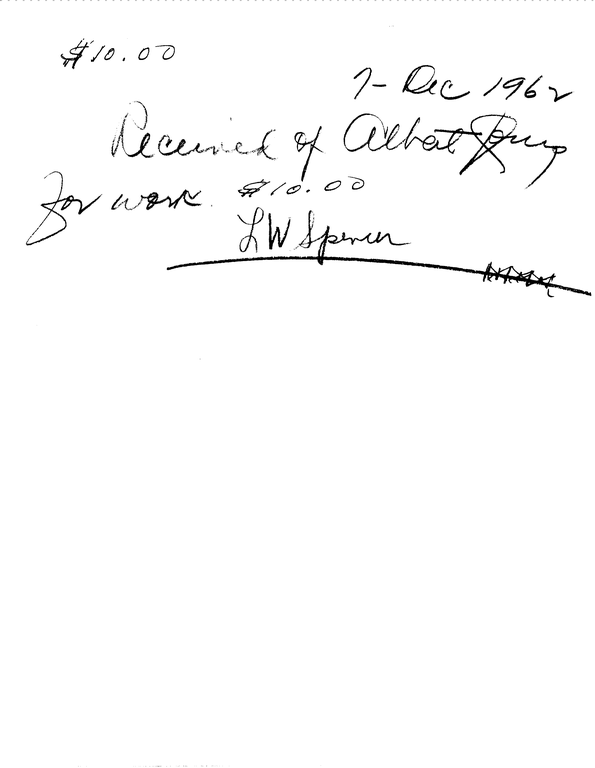 $10.00
7- Dec 1962
Received of Albert
for work. $10.00
L W Spencer